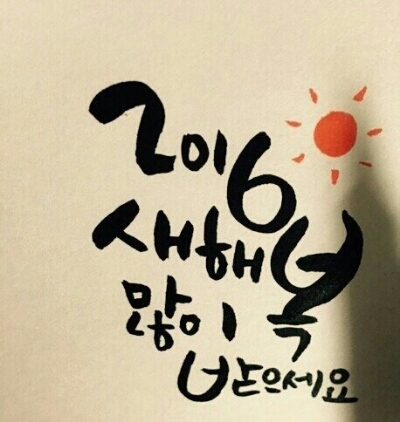 2016
새해 복
많이
받으세요